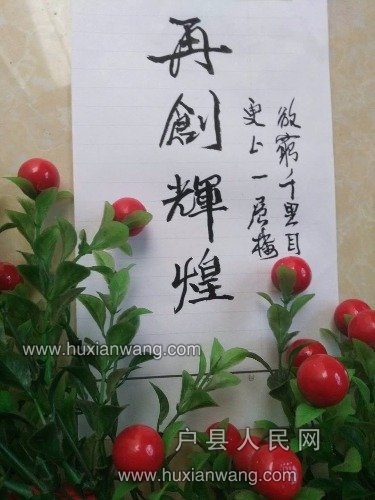 再創輝煌
欲窮千里目
更上一层楼
www.huxianwang.com
www.huxianwang.com
户县人民网
www.huxianwang.com